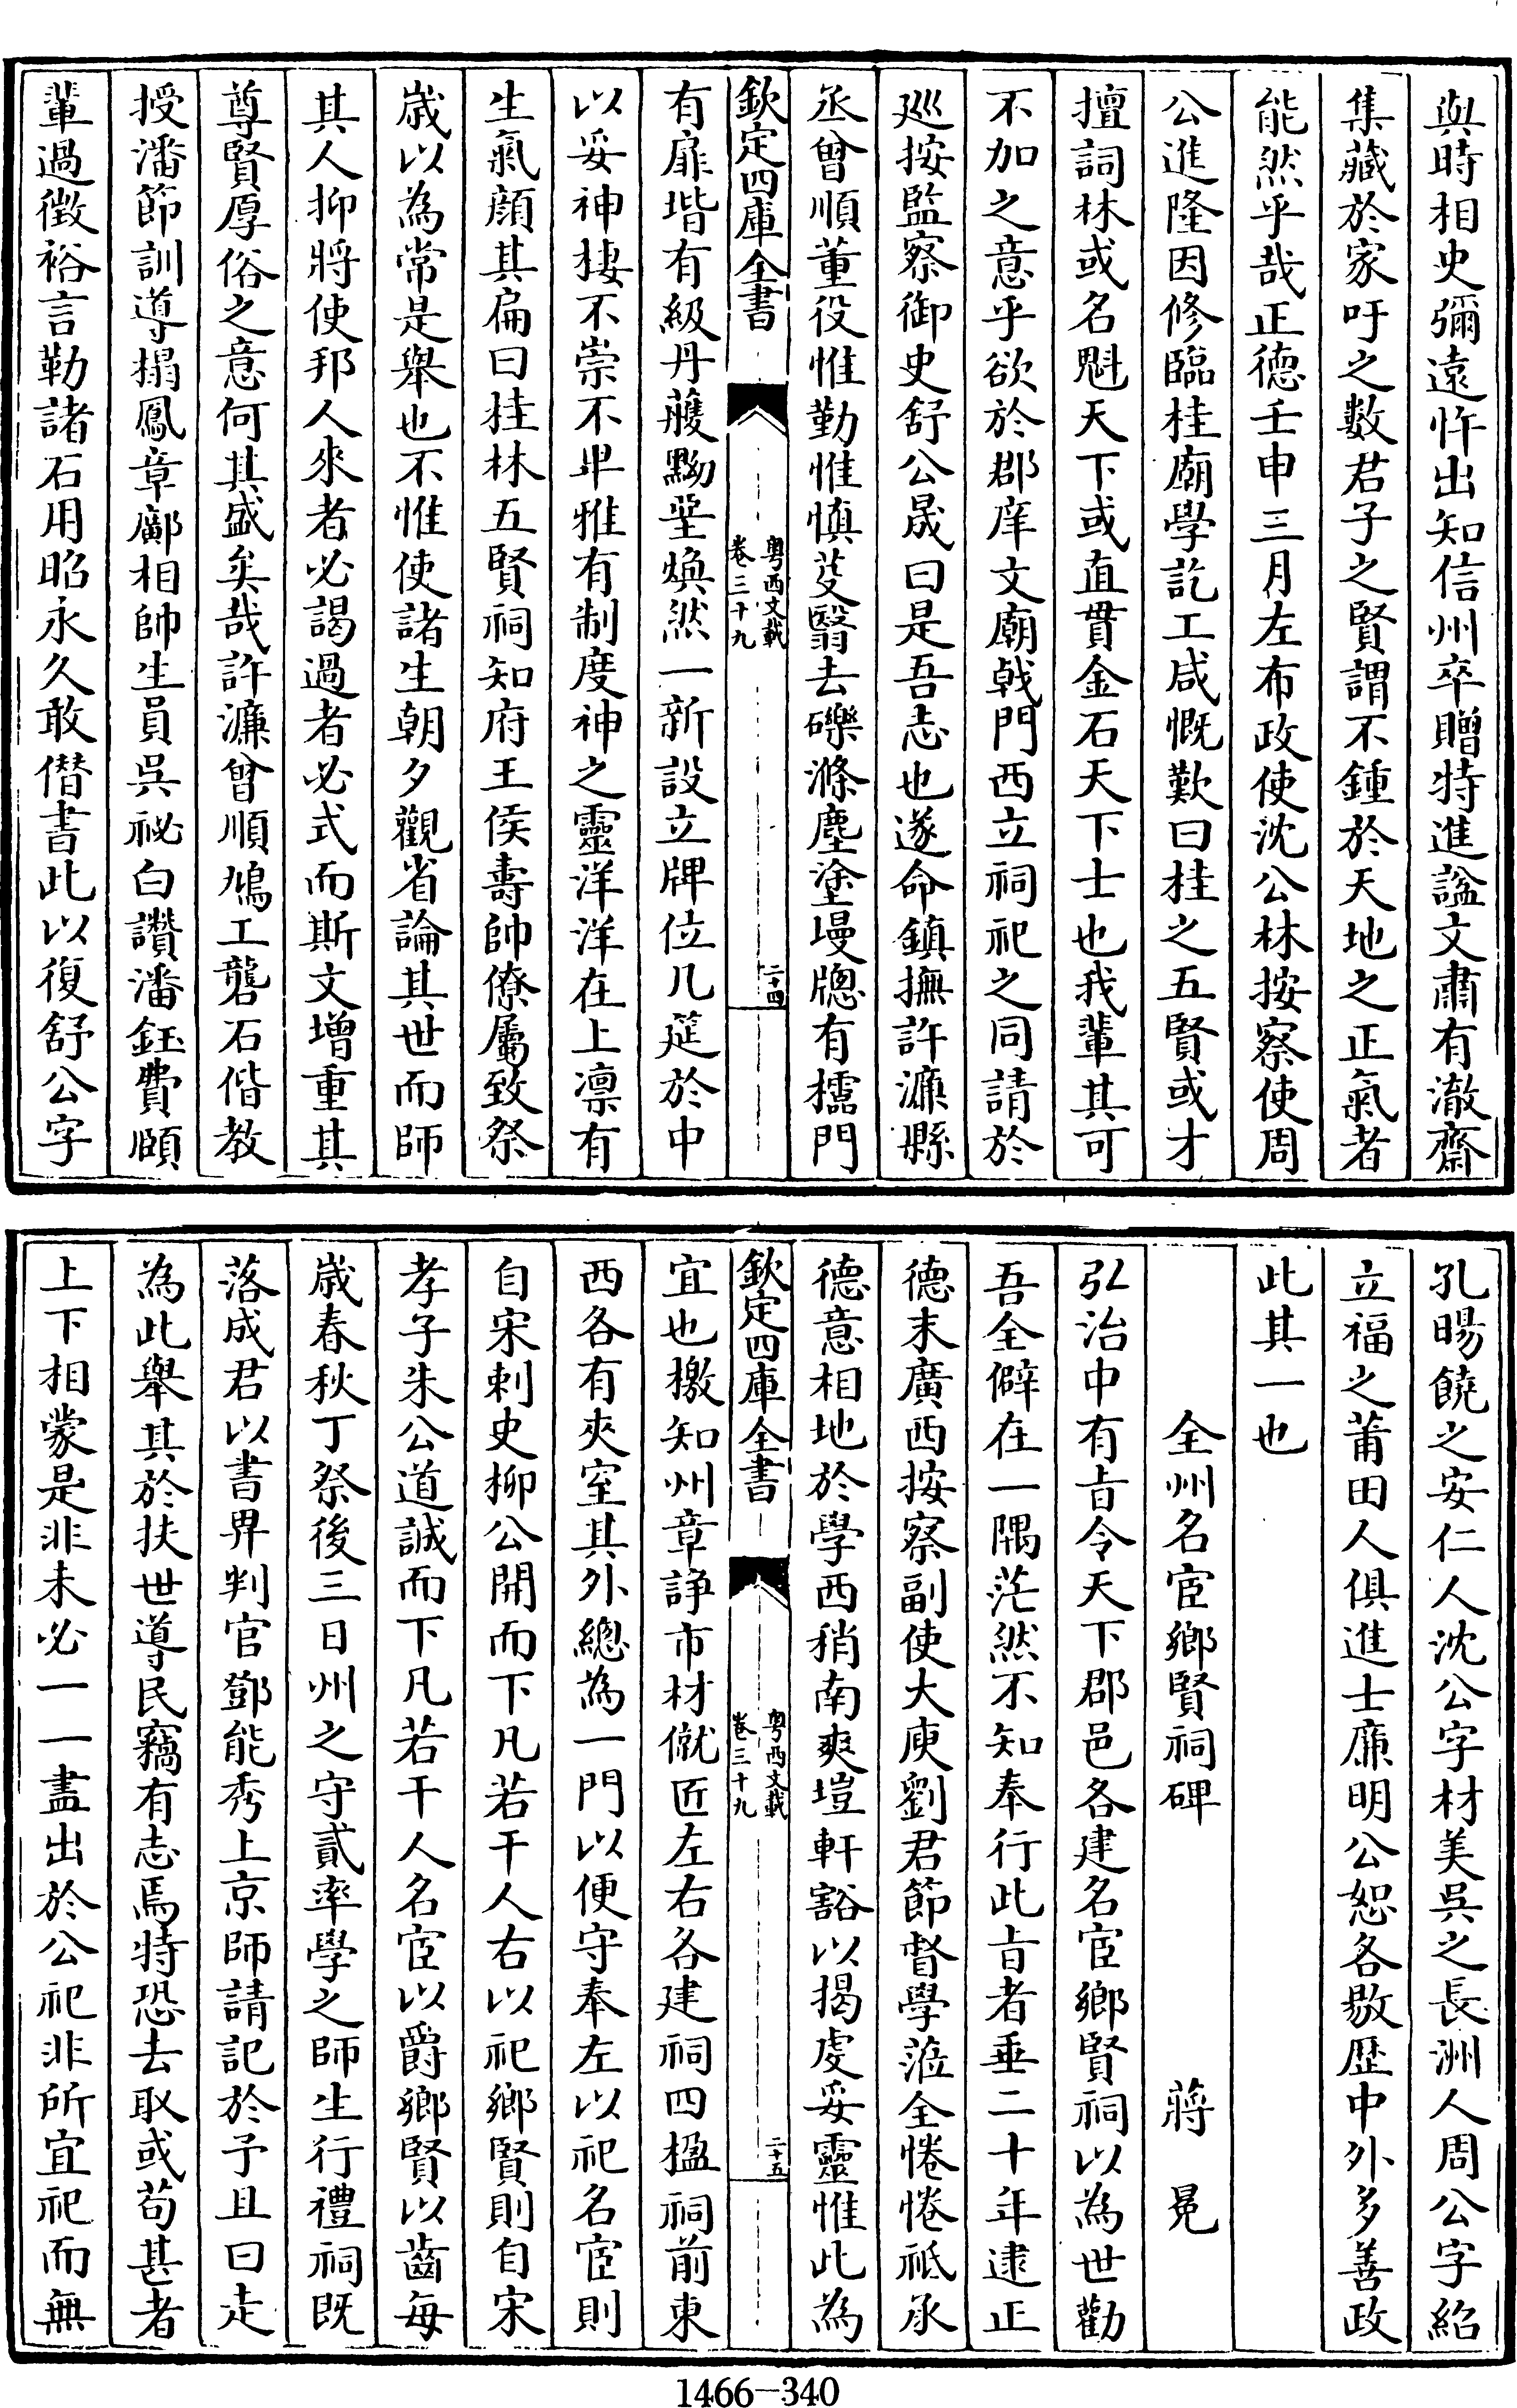 與時相史彌遠忤出知信州卒贈特進諡文肅有澈齋
集藏於家吁之數君子之賢謂不鍾於天地之正氣者
能然乎哉正德壬申三月左布政使沈公林按察使周
公進隆因修臨桂廟學訖工咸慨歎曰桂之五賢或才
擅詞林或名魁天下或直貫金石天下士也我輩其可
不加之意乎欲於郡庠文廟戟門西立祠祀之同請於
廵按監察御史舒公晟曰是吾志也遂命鎮撫許濂縣
丞曾順董役惟勤惟慎芟翳去礫滌塵塗墁牕有櫺門
欽定四庫全書
粤西文載
卷三十九
二十四
有扉堦有級丹雘黝堊煥然一新設立牌位几筵於中
以妥神棲不崇不卑雅有制度神之靈洋洋在上凛有
生氣顔其扁曰桂林五賢祠知府王侯壽帥僚屬致祭
歲以為常是舉也不惟使諸生朝夕觀省論其世而師
其人抑將使邦人來者必謁過者必式而斯文增重其
尊賢厚俗之意何其盛矣哉許濂曾順鳩工礱石偕教
授潘節訓導揭鳳章鄺相帥生員吳祕白讚潘鈺費頤
輩過徵裕言勒諸石用昭永久敢僣書此以復舒公字
孔暘饒之安仁人沈公字材美吳之長洲人周公字紹
立福之莆田人俱進士廉明公恕各敭歴中外多善政
此其一也
全州名宦鄉賢祠碑　蔣冕
弘治中有㫖令天下郡邑各建名宦鄉賢祠以為世勸
吾全僻在一隅茫然不知奉行此㫖者垂二十年逮正
德末廣西按察副使大庾劉君節督學蒞全惓惓祇承
德意相地於學西稍南爽塏軒豁以揭虔妥靈惟此為
欽定四庫全書
粤西文載
卷三十九
二十五
宜也檄知州章諍市材僦匠左右各建祠四楹祠前東
西各有夾室其外總為一門以便守奉左以祀名宦則
自宋刺史柳公開而下凡若干人右以祀鄉賢則自宋
孝子朱公道誠而下凡若干人名宦以爵鄉賢以齒每
歲春秋丁祭後三日州之守貳率學之師生行禮祠既
落成君以書畀判官鄧能秀上京師請記於予且曰走
為此舉其於扶世導民竊有志焉特恐去取或茍甚者
上下相蒙是非未必一一盡出於公祀非所宜祀而無
1466-340